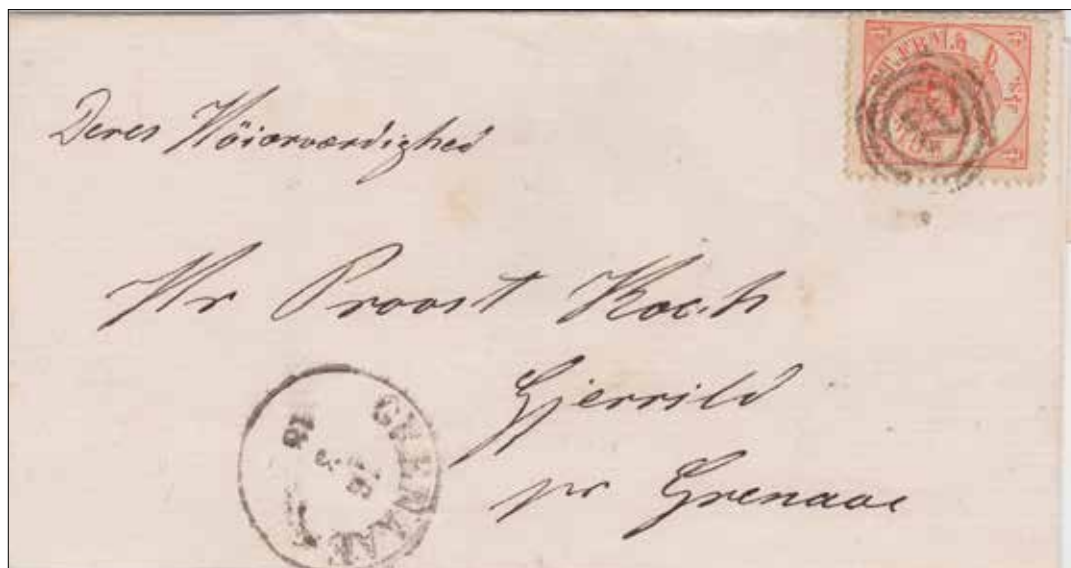 Deres Höiærværdighed
Hr Proost Koch
Gjerrild
pr Grenaae
GREENAAE